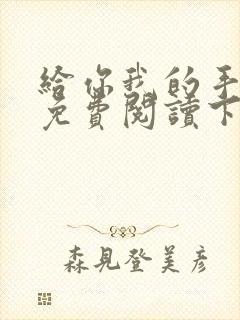 給你我的手
免費閱讀下
森見登美彥